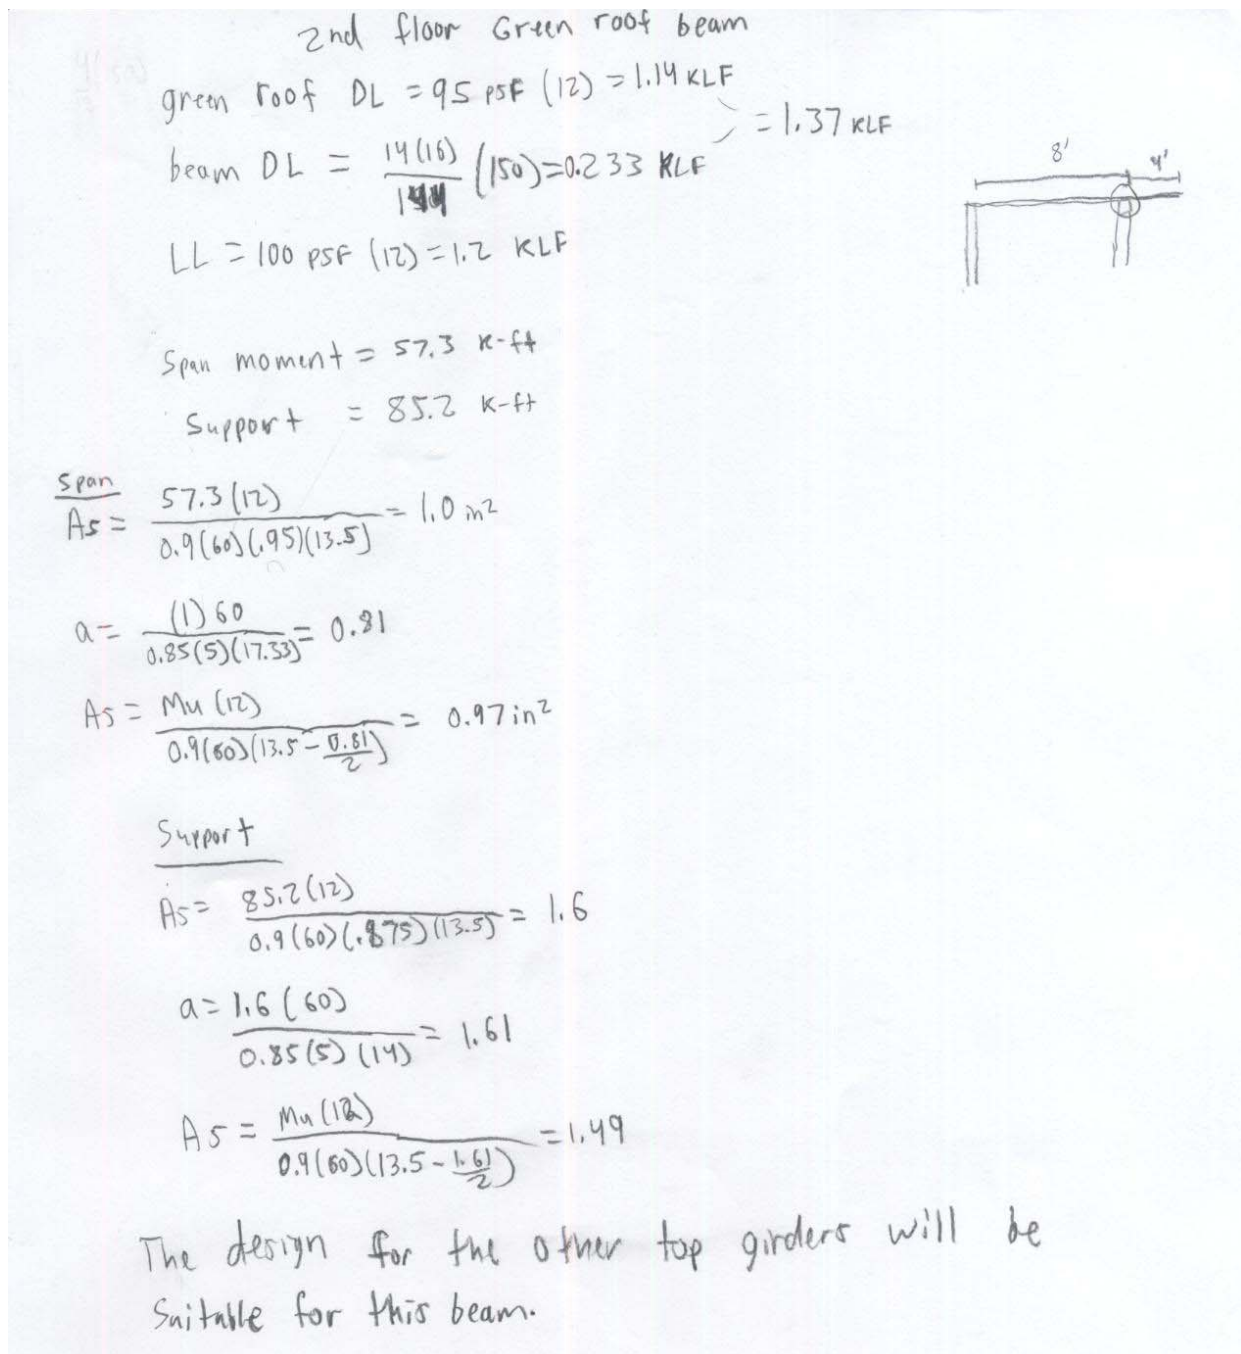 2nd floor Green roof beam
green roof DL = 95 PSF (12) = 1.14 KLF
= 1.37 KLF
beam DL = 14(16)/144 (150) = 0.233 KLF
8' 4'
LL = 100 PSF (12) = 1.2 KLF
Span moment = 57.3 K-ft
Support = 85.2 K-ft
Span
As = 57.3(12)/0.9(60)(.95)(13.5) = 1.0 in²
a = (1)60/0.85(5)(17.33) = 0.81
As = Mu(12)/0.9(60)(13.5 - 0.81/2) = 0.97 in²
Support
As = 85.2(12)/0.9(60)(.875)(13.5) = 1.6
a = 1.6(60)/0.85(5)(14) = 1.61
As = Mu(12)/0.9(60)(13.5 - 1.61/2) = 1.49
The design for the other top girders will be
Suitable for this beam.